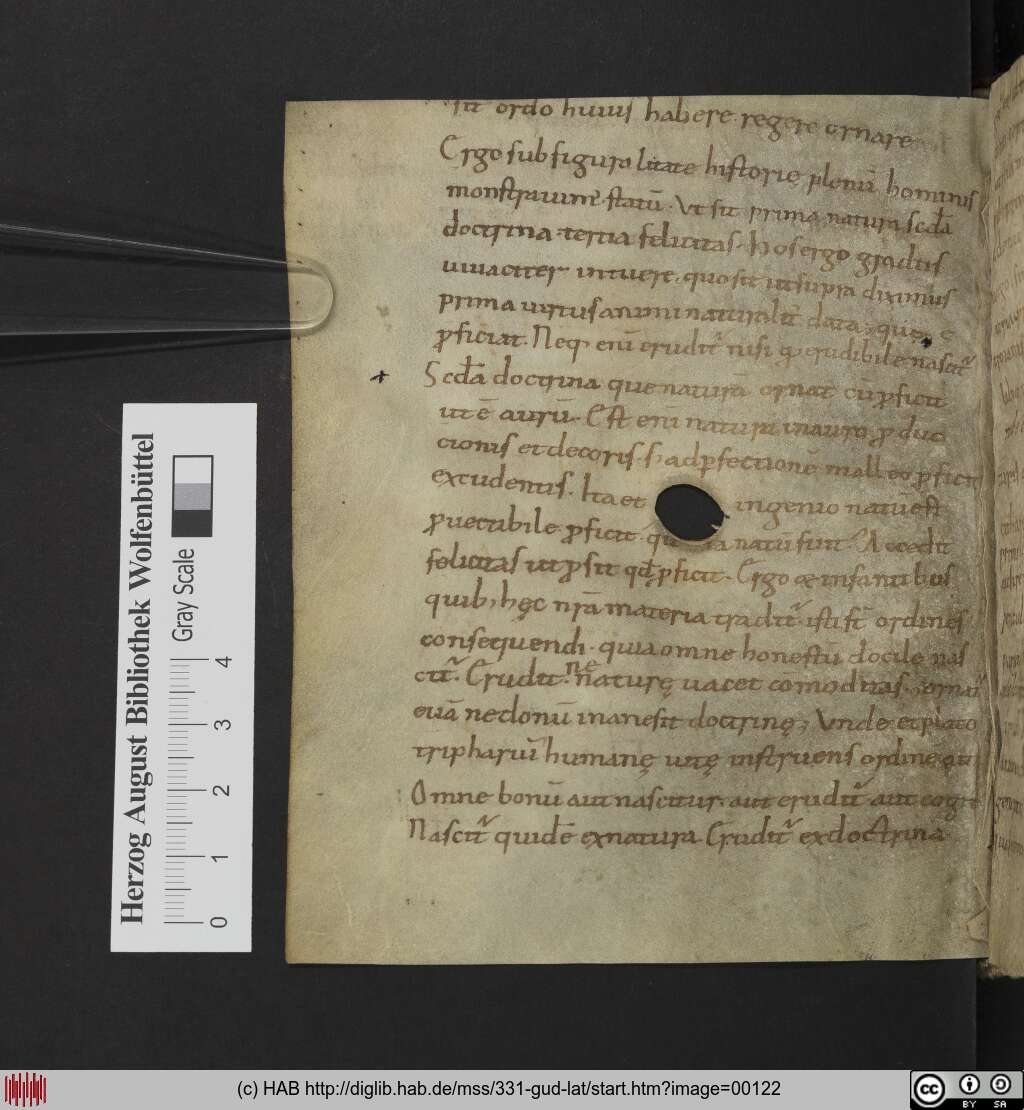 sit ordo huius habere regere ornare
Ergo sub figuralitate historię plenū hominis
monstravim᷒ statū. Ut sit prima natura scđa
doctrina tertia felicitas. hos ergo gradus
vivaciter intuere. quo sit ut supra diximus
prima virtus animi naturalit̄ data, que
ꝓficiat. Neq; enī erudit᷒ nisi ꝙ erudibile nascit᷒
Scđa doctrina que naturā ornat cū ꝓficit
ut ē aurū. Est enī natura in auro
cionis et decoris. s; ad ꝑfectionē malleo ꝓficit
excudentis. Ita et ingenio natū est
ꝓvectabile ꝓficit natū fuit. Accedit
felicitas ut ꝓsit qđ ꝓficit. Ergo infantibus
quib; hęc nr̄a materia tradit᷒. isti st̄ ordines
consequendi. quia omne honestū docile nas
cit᷒. Erudit᷒. ne naturę vacet comoditas. ornat᷒
euā ne donū inane sit doctrinę, Unde et plato
humanę vitę instruens ordinē
Omne bonū aut nascitur. aut erudit᷒ aut cogit
Nascit᷒ quidē ex natura. Erudit᷒ ex doctrina
Herzog August Bibliothek Wolfenbüttel
Gray Scale
0 1 2 3 4
(c) HAB http://diglib.hab.de/mss/331-gud-lat/start.htm?image=00122
cc BY SA